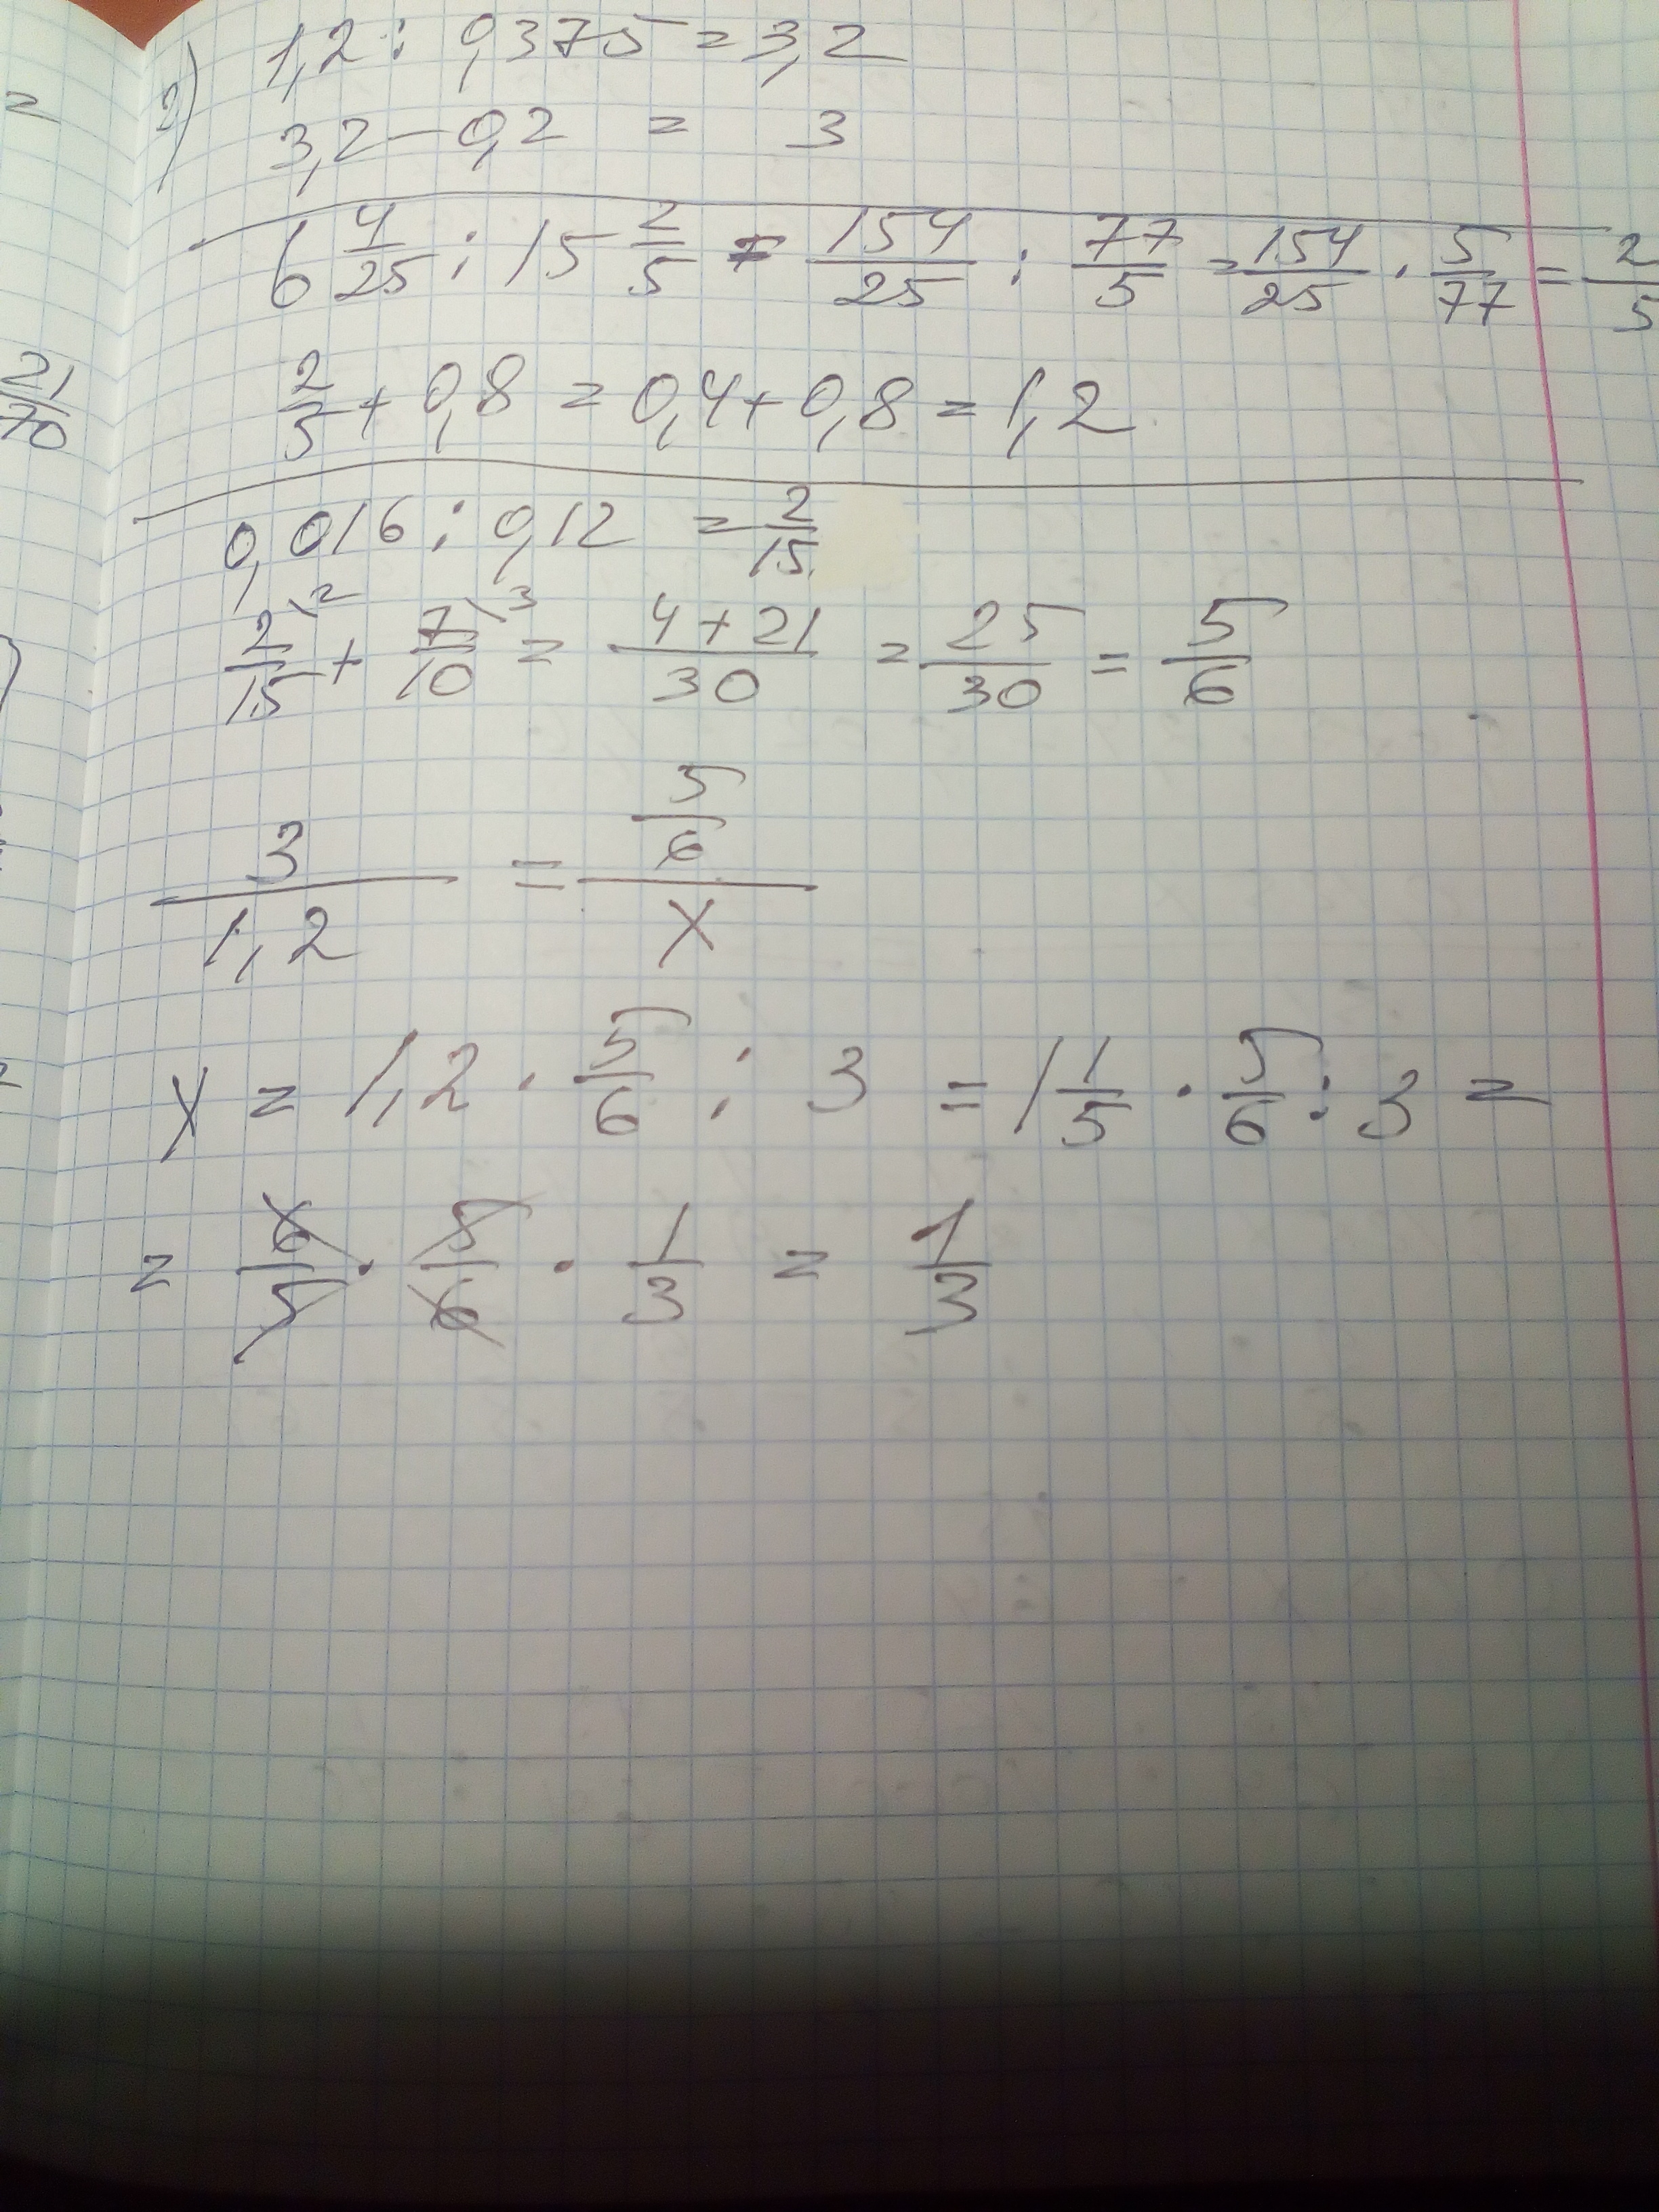 2) 1,2 : 0,375 = 3,2
3,2 - 0,2 = 3
6 4/25 : 15 2/5 = 154/25 : 77/5 = 154/25 · 5/77 = 2/5
2/5 + 0,8 = 0,4 + 0,8 = 1,2
0,016 : 0,12 = 2/15
2/15 \2 + 7/10 \3 = (4 + 21)/30 = 25/30 = 5/6
3/1,2 = 5/6/x
x = 1,2 · 5/6 : 3 = 1 1/5 · 5/6 : 3 =
= 6/5 · 5/6 · 1/3 = 1/3
=
21/70